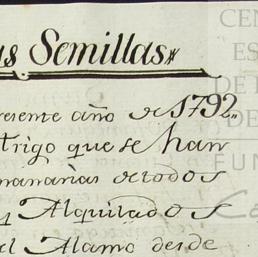 as Semillas
resente año de 1792
trigo que se han
de todos
y Alquilados
el Alamo desde
CEN
ES
DE
DE
FUN
Ca